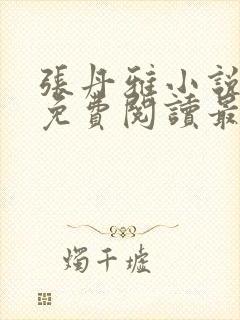 張丹雅小說
免費閱讀最
燭千墟